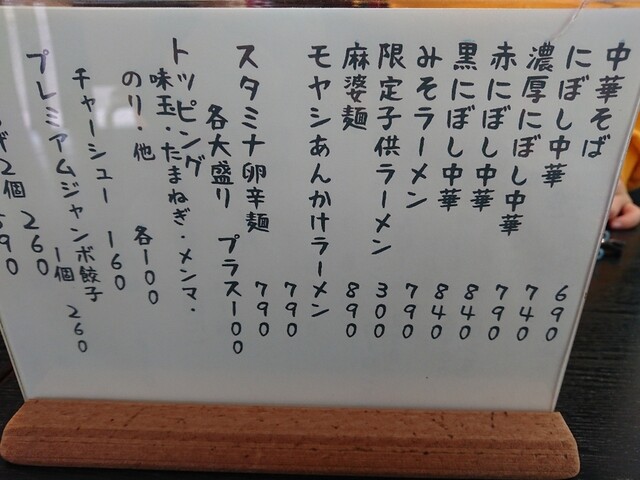 中華そば 690
にぼし中華 740
濃厚にぼし中華 790
赤にぼし中華 840
黒にぼし中華 840
みそラーメン 790
限定子供ラーメン 300
麻婆麺 890
モヤシあんかけラーメン 790
スタミナ卵辛麺 790
各大盛り プラス100
トッピング
味玉・たまねぎ・メンマ・
のり・他 各100
チャーシュー 160
プレミアムジャンボ餃子
1個 260
260
2個